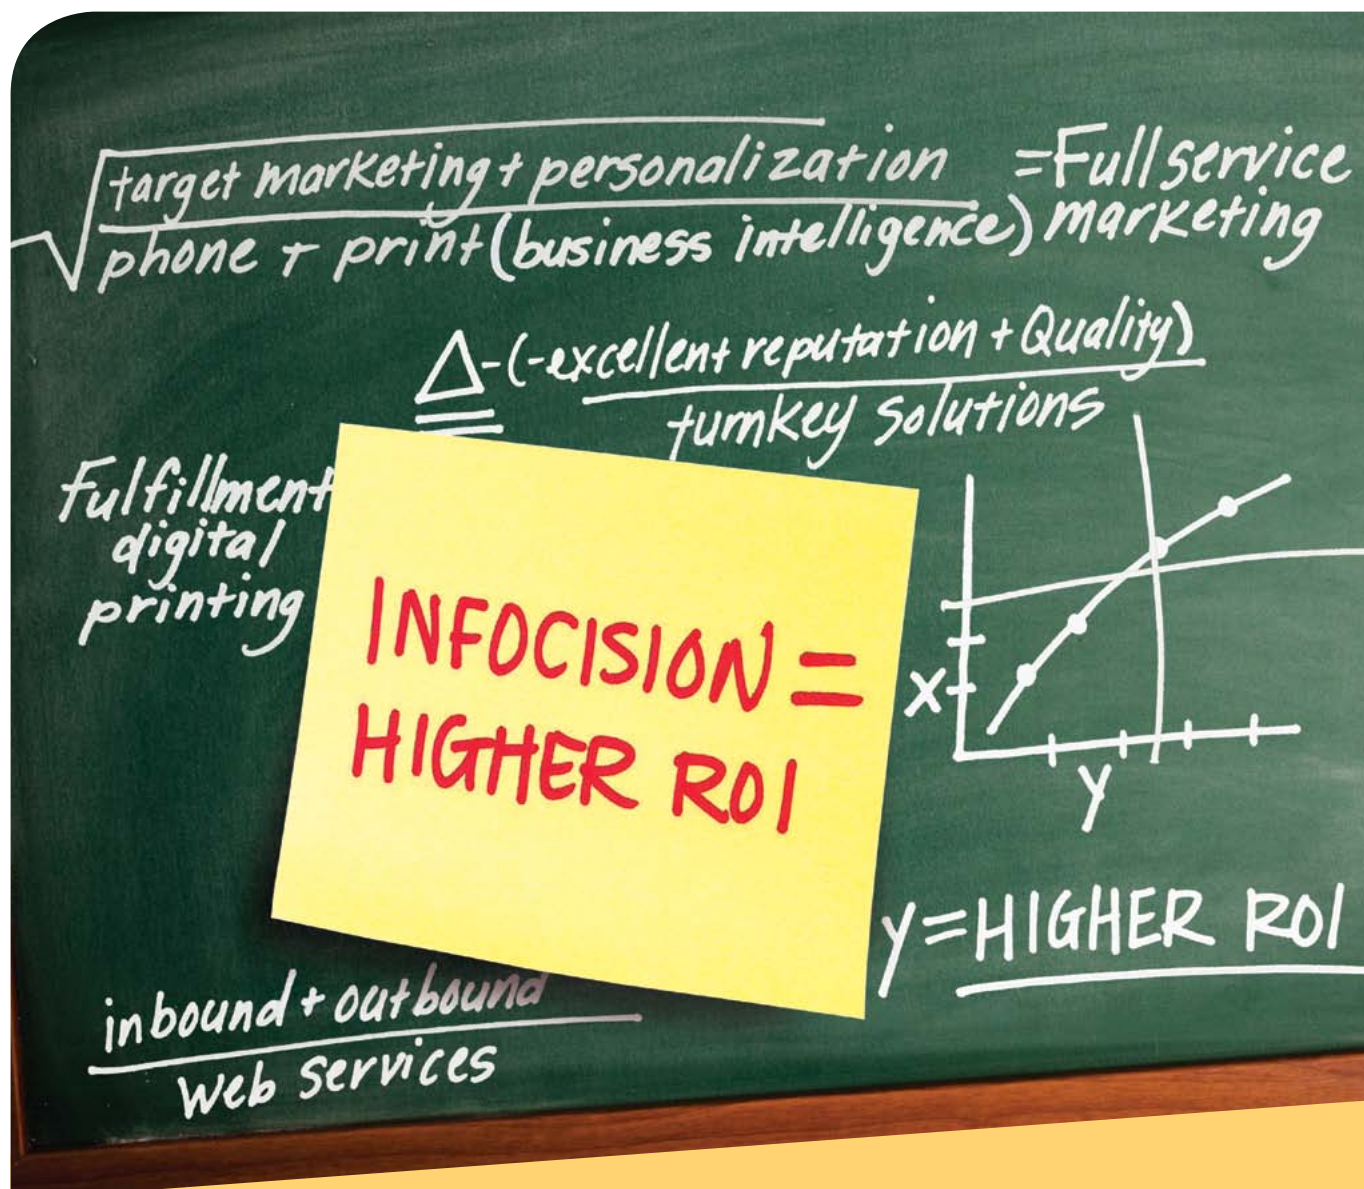 target marketing + personalization
phone + print (business intelligence)
=Full service
marketing
Δ-(-excellent reputation + Quality)
turnkey solutions
Fulfillment
digital
printing
INFOCISION =
HIGHER ROI
X
y
y=HIGHER ROI
inbound + outbound
Web Services